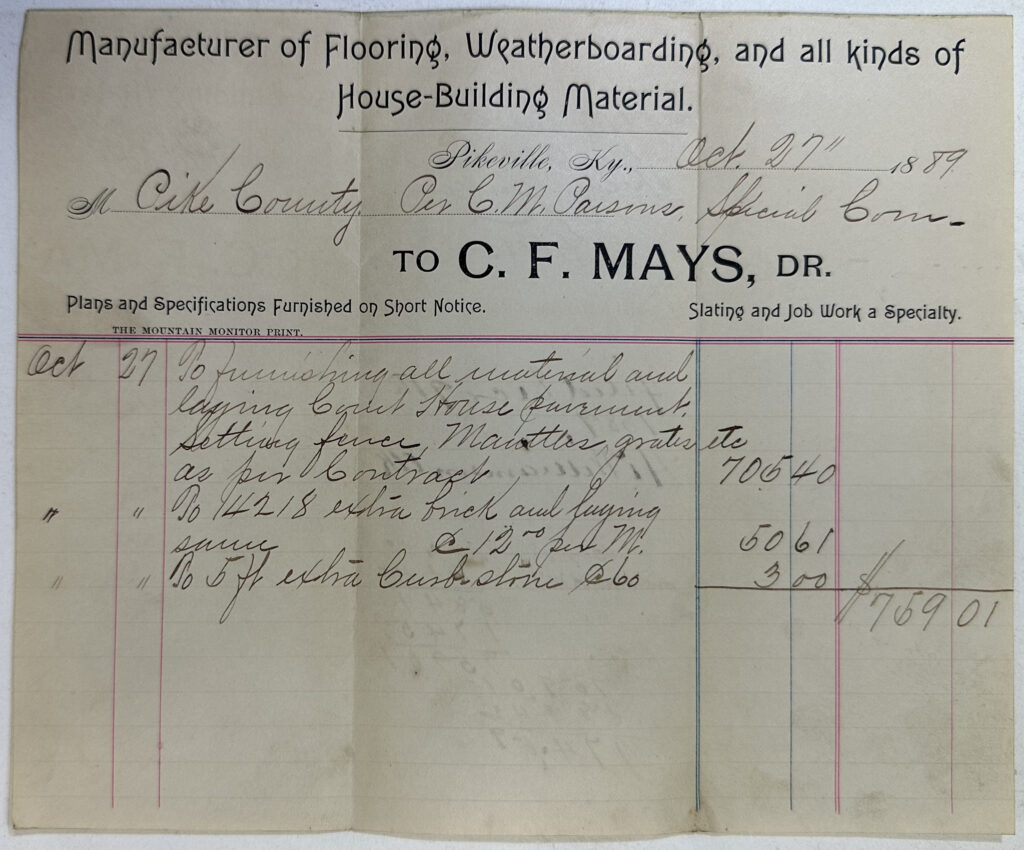 Manufacturer of Flooring, Weatherboarding, and all kinds of
House-Building Material.
Pikeville, Ky., Oct. 27" 1889.
M Pike County Per C. M. Parsons, Special Com-
TO C. F. MAYS, DR.
Plans and Specifications Furnished on Short Notice. Slating and Job Work a Specialty.
THE MOUNTAIN MONITOR PRINT.
Oct 27 To furnishing all material and
laying Court House pavement,
Setting fence, Mantles, grates etc
as per Contract 705 40
" " To 14218 extra brick and laying
same @ 12 00 per M. 50 61
" " To 5 ft extra Curb stone @ 60 3 00
$759 01